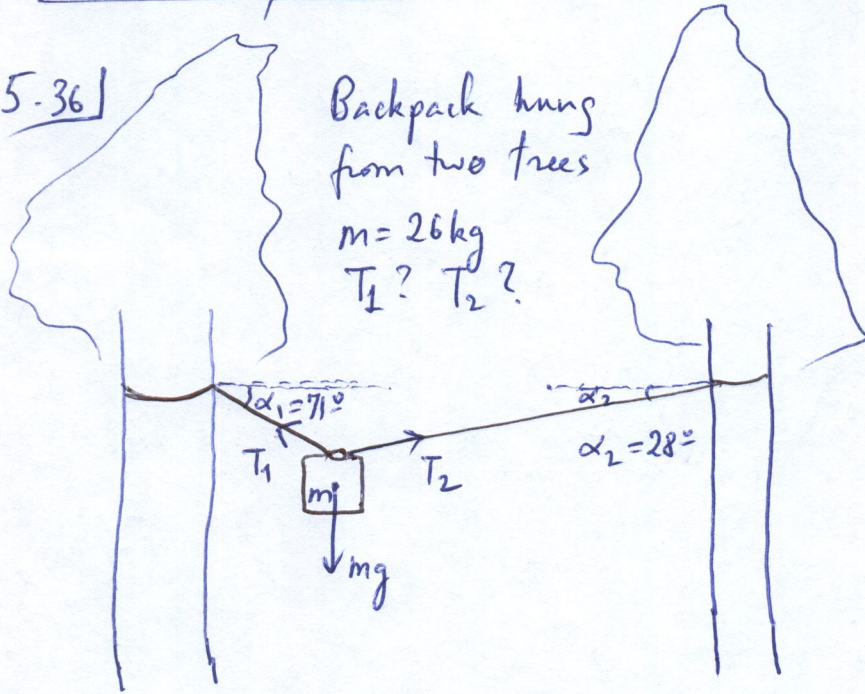 5-36
Backpack hung
from two trees
m = 26 kg
T₁ ? T₂ ?
α₁ = 71º
α₂
α₂ = 28º
T₁
T₂
m
mg